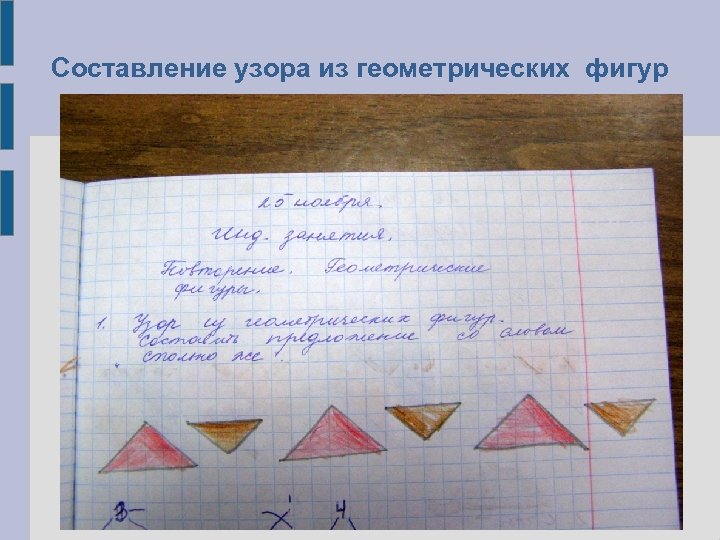 Составление узора из геометрических фигур
25 ноября.
Инд. занятия.
Повторение. Геометрические
фигуры.
1. Узор из геометрических фигур.
Составить предложение со словом
столько же.
3 4